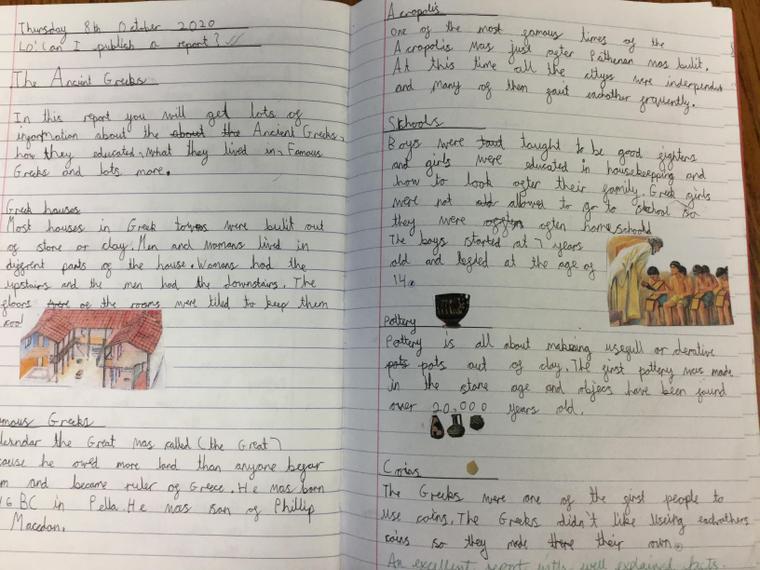 Thursday 8th October 2020
LO: Can I publish a report?
The Ancient Greeks
In this report you will get lots of
information about the about the Ancient Greeks,
how they educated, what they lived in, Famous
Greeks and lots more.
Greek houses
Most houses in Greek towns were bulit out
of stone or clay. Men and womans lived in
diggrent parts of the house. Womans had the
upstairs and the men had the downstairs. The
floors of the rooms were tiled to keep them
cool
amous Greeks
the Great was called (the Great)
cause he owed more land than anyone begar
m and became ruler of Greece. He was born
BC in Pella. He was son of Phillip
Macedon.
Acropolis
One of the most famous times of the
Acropolis was just after was bulit.
At this time all the were
and many of them eachather frequently.
Schools
Boys were taught to be good fighters
and girls were educated in housekeepping and
how to look after their family. Greek girls
were not allowed to go to school so
they were often home school
The boys started at 7 years
old and at the age of
14.
Pottery
Pottery is all about making usegull or
pots pots out of clay. The first pottery was made
in the stone age and objecs have been found
over 20,000 years old.
Coins
The Greeks were one of the first people to
use coins. The Greeks didn't like eachathers
coins so they made there their own.
An excellent report with well explained facts.